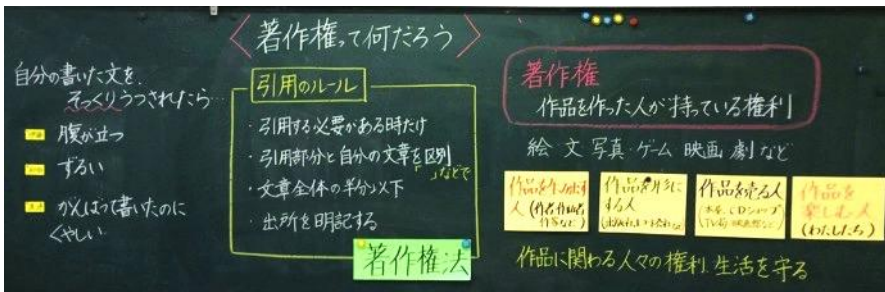 〈著作権って何だろう〉
自分の書いた文を、
そっくりうつされたら…
腹が立つ
ずるい
がんばって書いたのに
くやしい
引用のルール
・引用する必要がある時だけ
・引用部分と自分の文章を区別
「 」などで
・文章全体の半分以下
・出所を明記する
著作権法
著作権
作品を作った人が持っている権利
絵 文 写真 ゲーム 映画 劇 など
作品を作り出す
人
作品を形に
する人
作品を売る人
作品を
楽しむ人
(わたしたち)
作品に関わる人々の権利、生活を守る